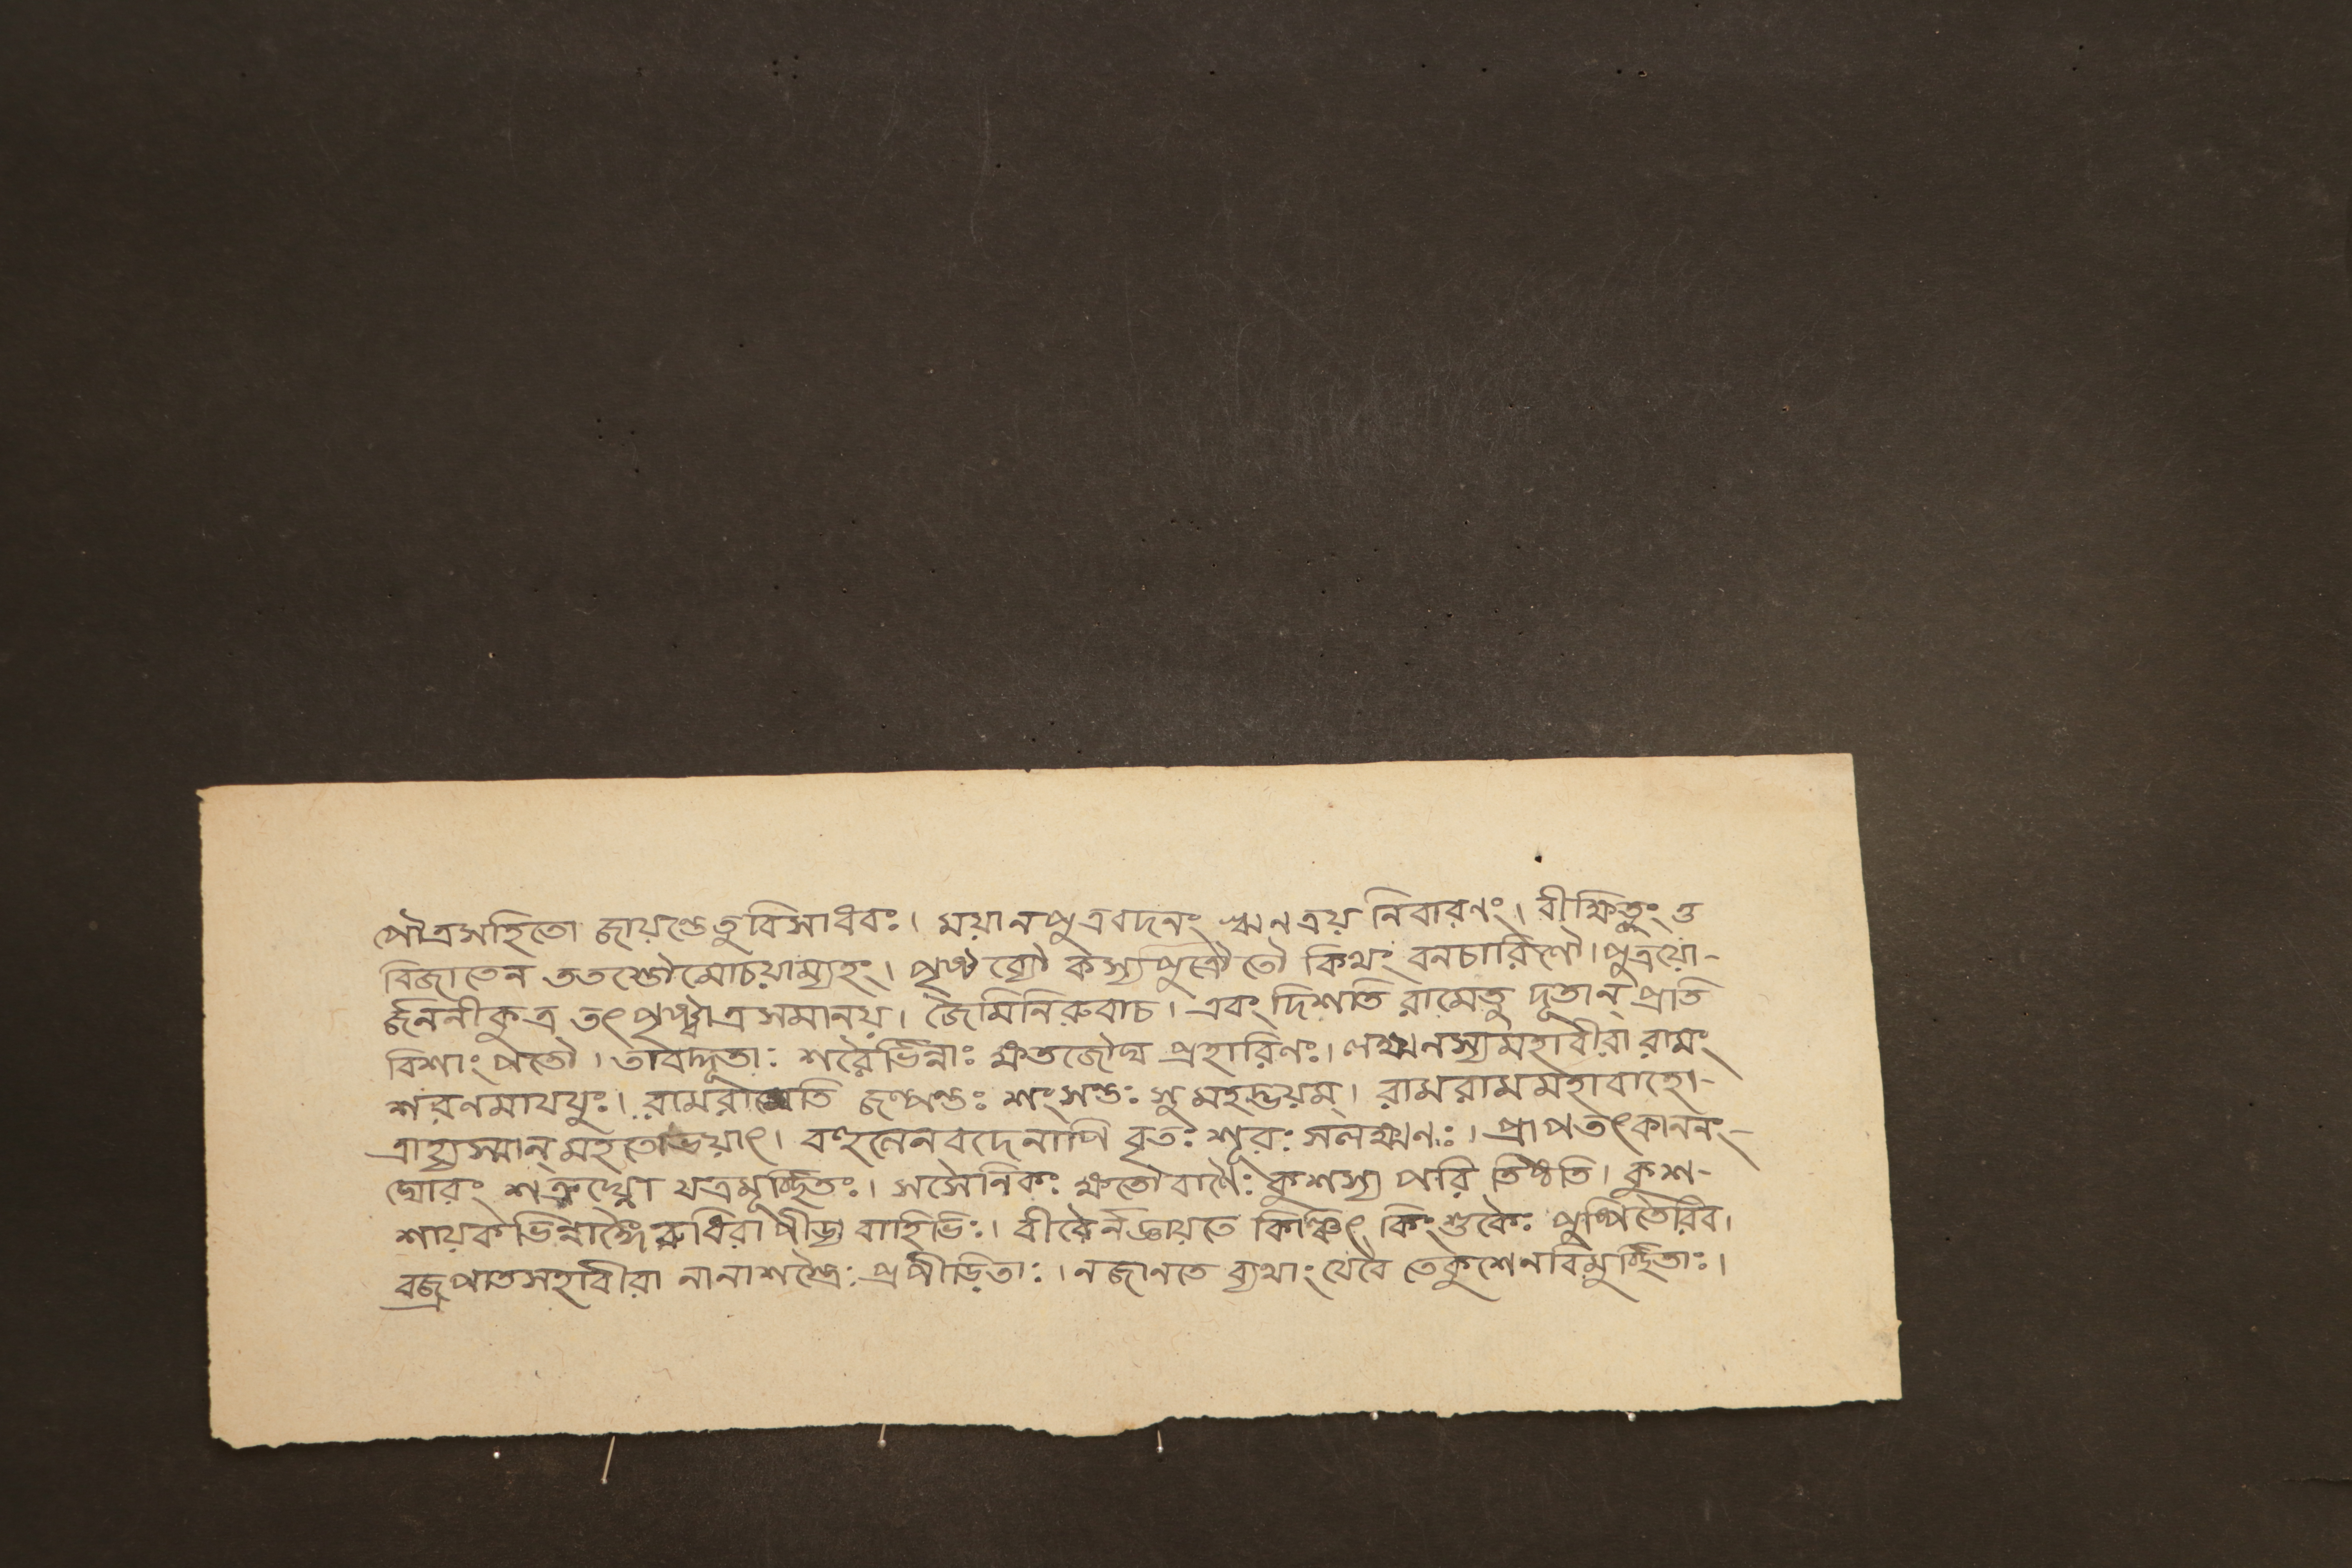 পৌত্রসহিতো জায়ন্তেতুবিসাধবঃ। ময়ানপুত্রবদনং ঋনত্রয় নিবারণং। বীক্ষিতুং ও
বিজাতেন ততস্তৌমোচয়াম্যহং। পৃথ্ব ব্যৌ কস্যপুত্রৌতৌ কিমং বনচারিণৌ। পুত্রয়ো-
র্জননীকুত্র তৎপৃষ্ট্বাত্রসমানয়। জৈমিনিরুবাচ। এবং দিশতি রামেতু দূতান্ প্রতি
বিশাং পতৌ। তাবদ্দূতাঃ শরৈর্ভিন্নাঃ ক্ষতজৌঘ প্রহারিনঃ। লক্ষ্মনস্যমহাবীরা রামং
শরনমাযযুঃ। রামরামেতি জল্পন্তঃ শংসন্তঃ সুমহদ্ভয়ম্। রামরামমহাবাহো-
ত্রাহ্যস্মান্ মহতোভয়াৎ। বহুনেনবদেনাপি বৃতঃ শূরঃ সলক্ষ্মণঃ। প্রাপতৎকাননং-
ঘোরং শত্রুঘ্নো যত্রমূর্চ্ছিতঃ। সসৈনিকঃ ক্ষতৌবাণৈঃ কুশস্য পরি তিষ্ঠতি। কুশ-
শায়কভিন্নাঙ্গৈ রুধিরাপীড্য বাহিভিঃ। বীরৈর্নজ্ঞায়তে কিঞ্চিৎ কিংশুকৈঃ পুষ্পিতৈরিব।
বজ্রপাতসহাবীরা নানাশস্ত্রৈঃ প্রপীড়িতাঃ। নজানতে ব্যথাং যেবৈ তেকুশেনবিমুর্চ্ছিতাঃ।